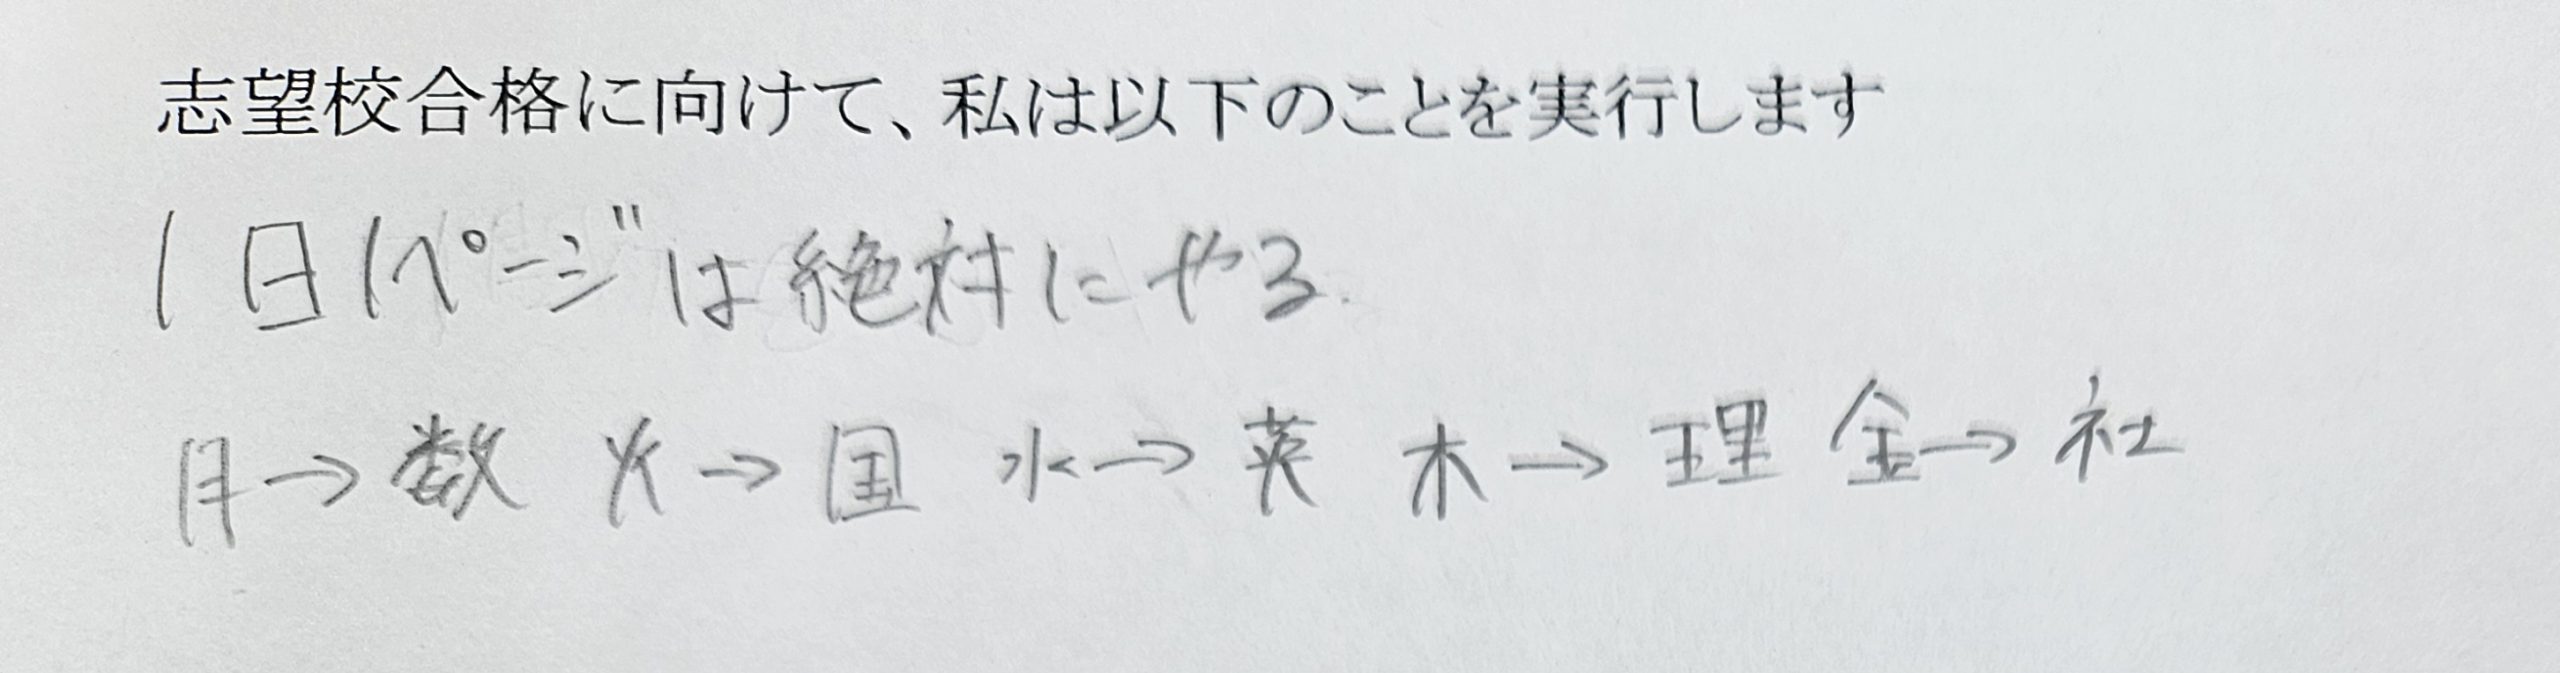 志望校合格に向けて、私は以下のことを実行します
1日1ページは絶対にやる.
月→数 火→国 水→英 木→理 金→社